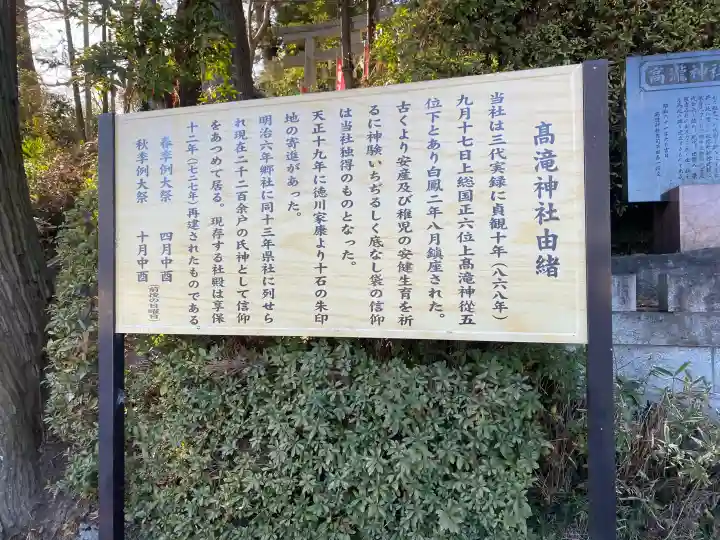 高滝神社由緒
当社は三代実録に貞観十年(八六八年)
九月十七日上総国正六位上高滝神從五
位下とあり白鳳二年八月鎮座された。
古くより安産及び稚児の安健生育を祈
るに神験いちぢるしく底なし袋の信仰
は当社独得のものとなった。
天正十九年に徳川家康より十石の朱印
地の寄進があった。
明治六年郷社に同十三年県社に列せら
れ現在二千二百余戸の氏神として信仰
をあつめて居る。現存する社殿は享保
十二年(七二七年)再建されたものである。
春季例大祭 四月中酉
秋季例大祭 十月中酉
(前後の日曜日)
高瀧神社